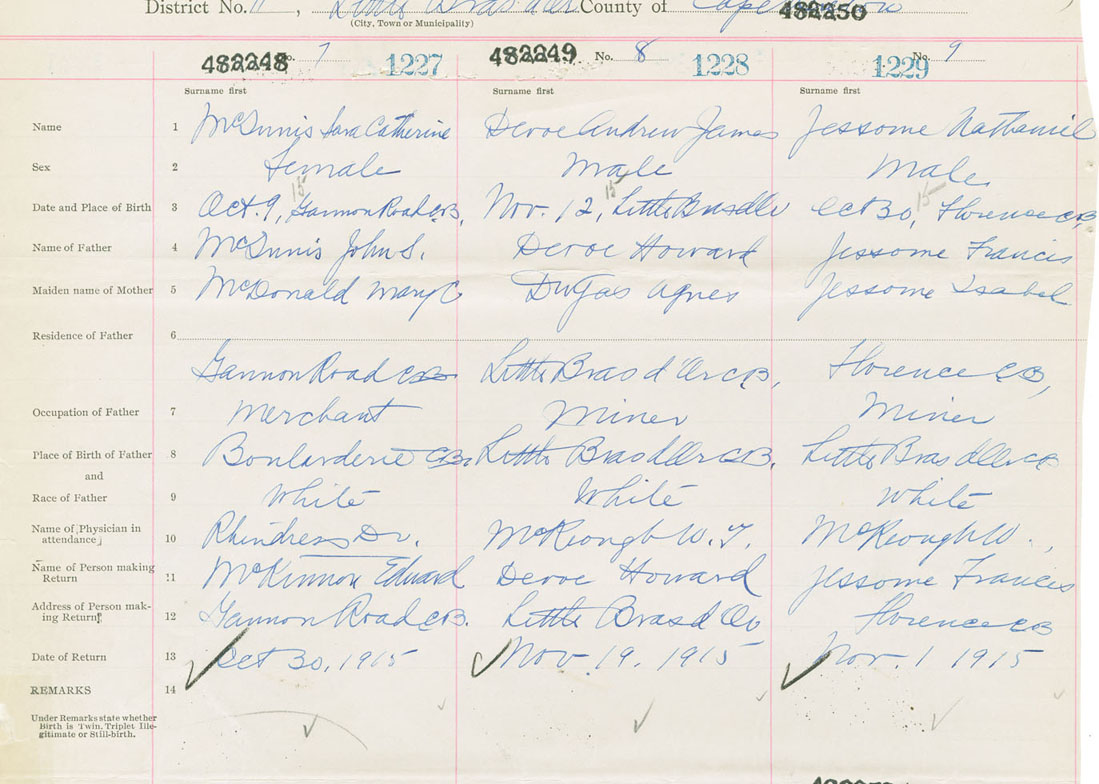 District No. 11, Little Bras d'Or County of Cape Breton 482250
(City, Town or Municipality)
482248 No. 7 1227 482249 No. 8 1228 1229 No. 9
Surname first Surname first Surname first
Name 1 McInnis Sara Catherine Devoe Andrew James Jessome Nathaniel
Sex 2 Female Male Male
15 15 15
Date and Place of Birth 3 Oct. 9, Gannon Road C.B. Nov. 12, Little Bras d'Or Oct 30, Florence C.B.
Name of Father 4 McInnis John S. Devoe Howard Jessome Francis
Maiden name of Mother 5 McDonald Mary C Dugas Agnes Jessome Isabel
Residence of Father 6
Gannon Road C.B. Little Bras d'Or C.B, Florence C.B,
Occupation of Father 7 Merchant Miner Miner
Place of Birth of Father 8 Boularderie C.B. Little Bras d'Or C.B. Little Bras d'Or C.B
and
Race of Father 9 White White White
Name of Physician in
attendance 10 Rhindress Dr. McKeough W. McKeough W.,
Name of Person making
Return 11 McKinnon Edward Devoe Howard Jessome Francis
Address of Person mak-
ing Return 12 Gannon Road C.B. Little Bras d'Or Florence C.B
Date of Return 13 Oct 30, 1915 Nov. 19. 1915 Nov. 1 1915
REMARKS 14
Under Remarks state whether
Birth is Twin, Triplet Ille-
gitimate or Still-birth.